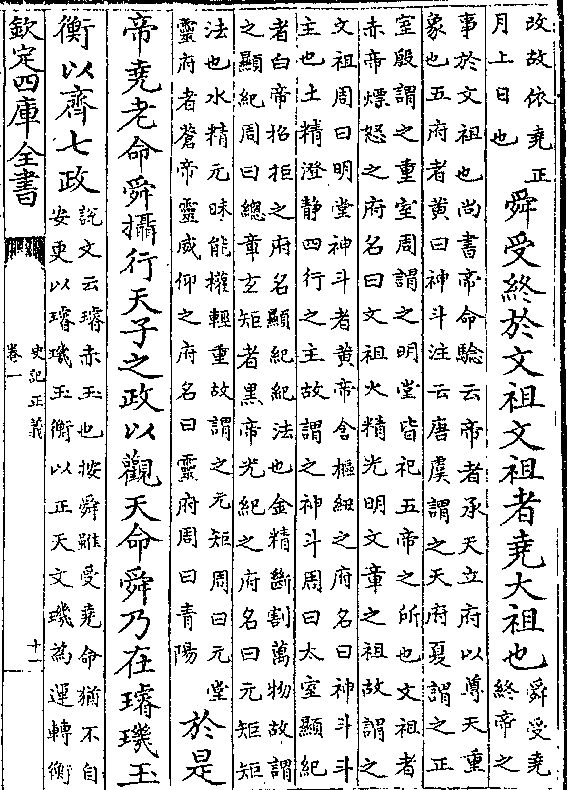 改故依堯正
月上日也
舜受終於文祖文祖者堯大祖也
舜受堯
終帝之
事於文祖也尚書帝命驗云帝者承天立府以尊天重
象也五府者黄曰神斗注云唐虞謂之天府夏謂之正
室殷謂之重室周謂之明堂皆祀五帝之所也文祖者
赤帝熛怒之府名曰文祖火精光明文章之祖故謂之
文祖周曰明堂神斗者黄帝含樞紐之府名曰神斗斗
主也土精澄静四行之主故謂之神斗周曰太室顯紀
者白帝招拒之府名顯紀紀法也金精斷割萬物故謂
之顯紀周曰總章玄矩者黑帝光紀之府名曰元矩矩
法也水精元昧能權輕重故謂之元矩周曰元堂
靈府者蒼帝靈威仰之府名曰靈府周曰青陽
於是
帝堯老命舜攝行天子之政以觀天命舜乃在璿璣玉
衡以齊七政
説文云璿赤玉也按舜雖受堯命猶不自
安更以璿璣玉衡以正天文璣為運轉衡
欽定四庫全書
史記正義
卷一
十一